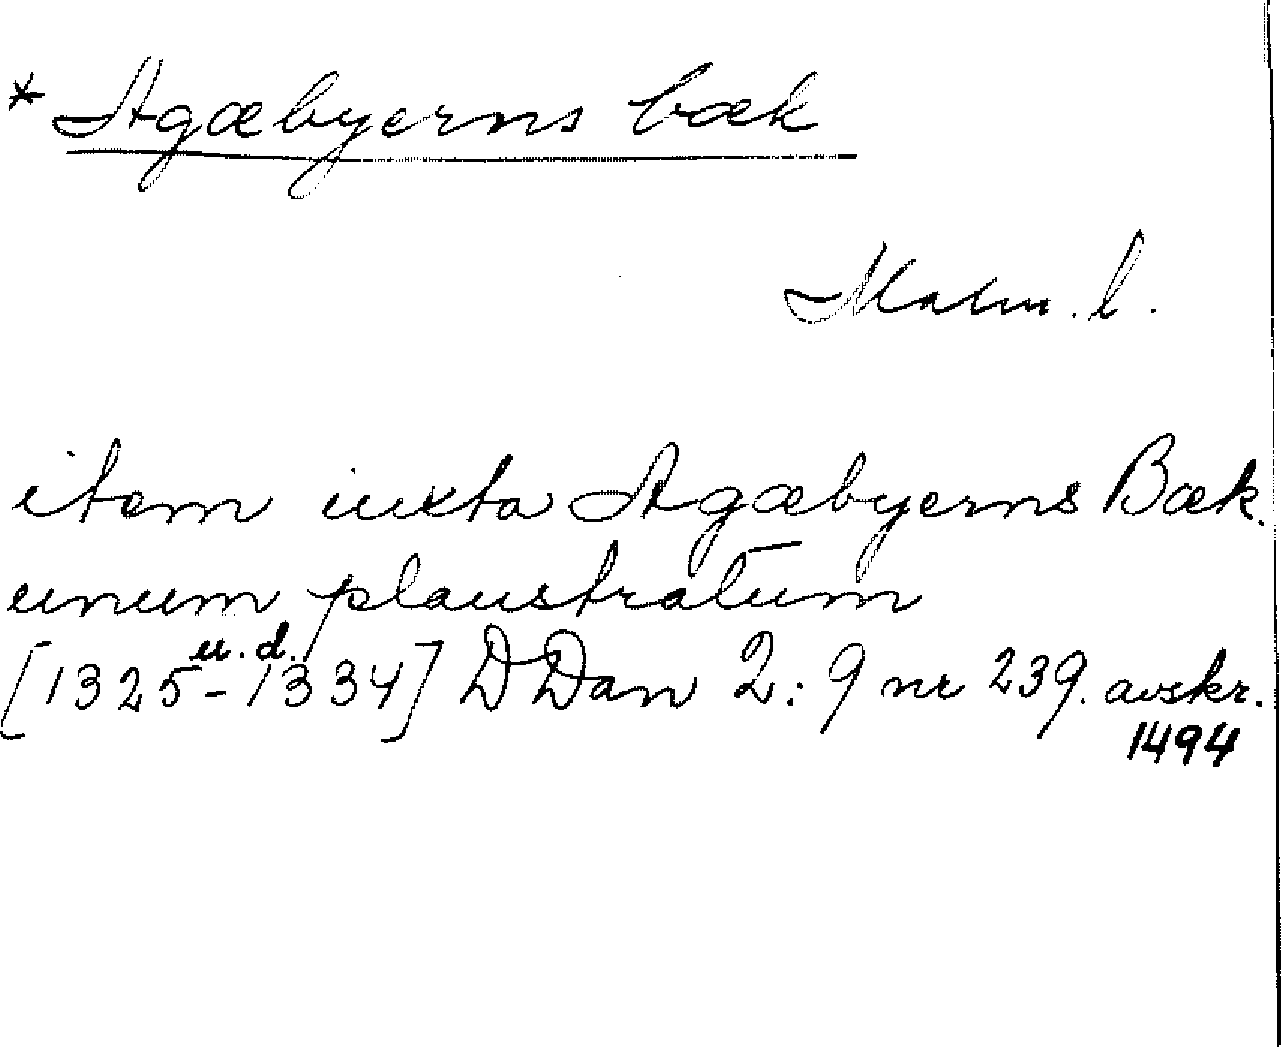 * Agæbyerns bæk
Malm. l.
item iuxta Agæbyerns Bæk.
unum plaustratum
u. d.
[1325-1334] DDan 2:9 nr 239. avskr.
1494